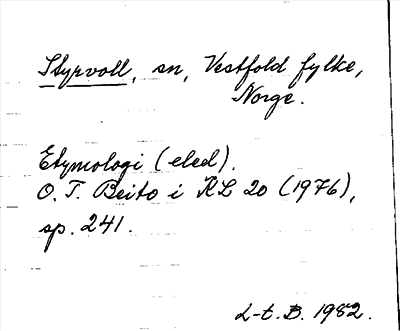 Styrvoll, sn, Vestfold fylke,
Norge.
Etymologi (eled).
O. T. Beito i KL 20 (1976),
sp. 241.
L-t. B. 1982.